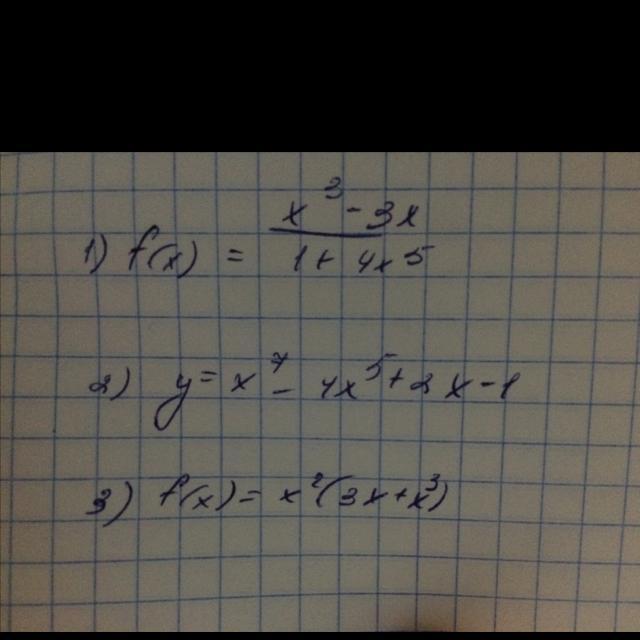 1) f(x) = x³ - 3x / 1 + 4x⁵
2) y = x⁷ - 4x⁵ + 2x - 1
3) f(x) = x²(3x + x³)